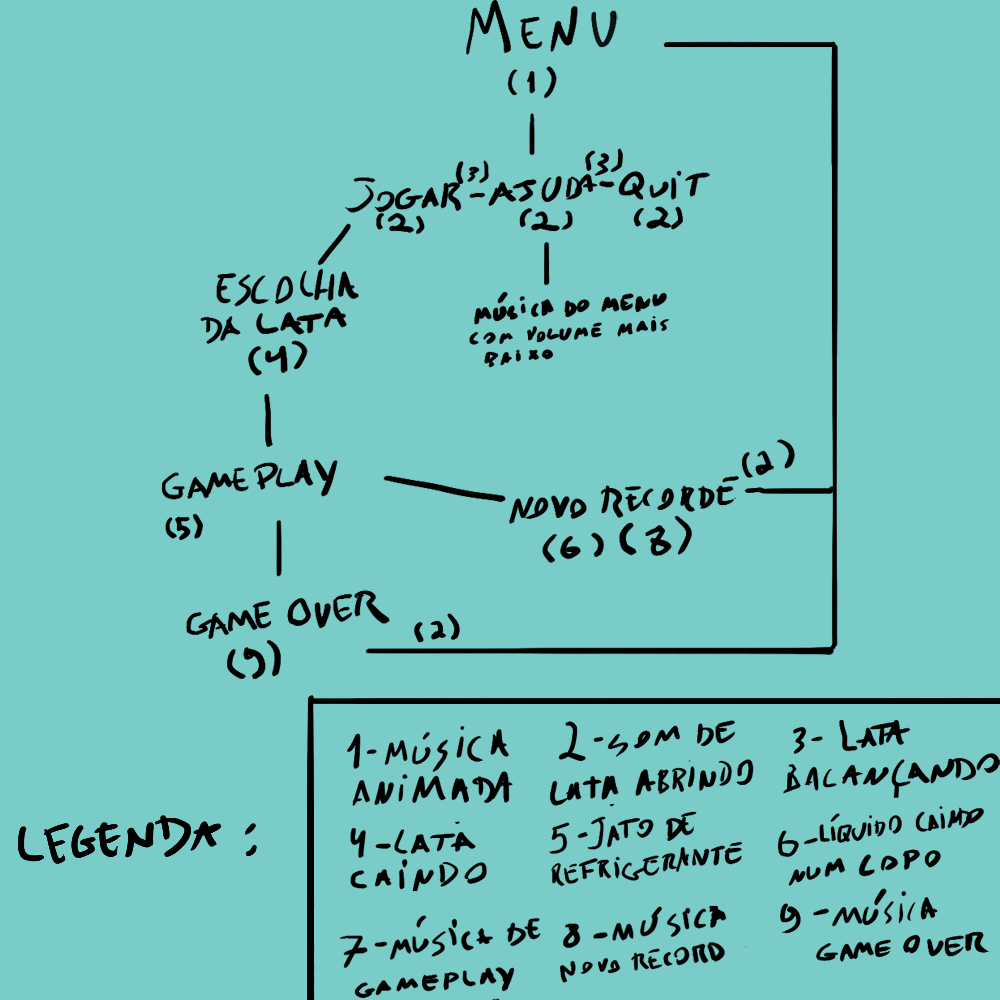 MENU
(1)
JOGAR (3) - AJUDA (3) - QUIT
(2) (2) (2)
ESCOLHA
DA LATA
(4)
MÚSICA DO MENU
COM VOLUME MAIS
BAIXO
GAMEPLAY
(5)
NOVO RECORDE (2)
(6) (8)
GAME OVER (2)
(9)
LEGENDA:
1-MÚSICA
ANIMADA
2-SOM DE
LATA ABRINDO
3-LATA
BALANÇANDO
4-LATA
CAINDO
5-JATO DE
REFRIGERANTE
6-LÍQUIDO CAINDO
NUM COPO
7-MÚSICA DE
GAMEPLAY
8-MÚSICA
NOVO RECORD
9-MÚSICA
GAME OVER